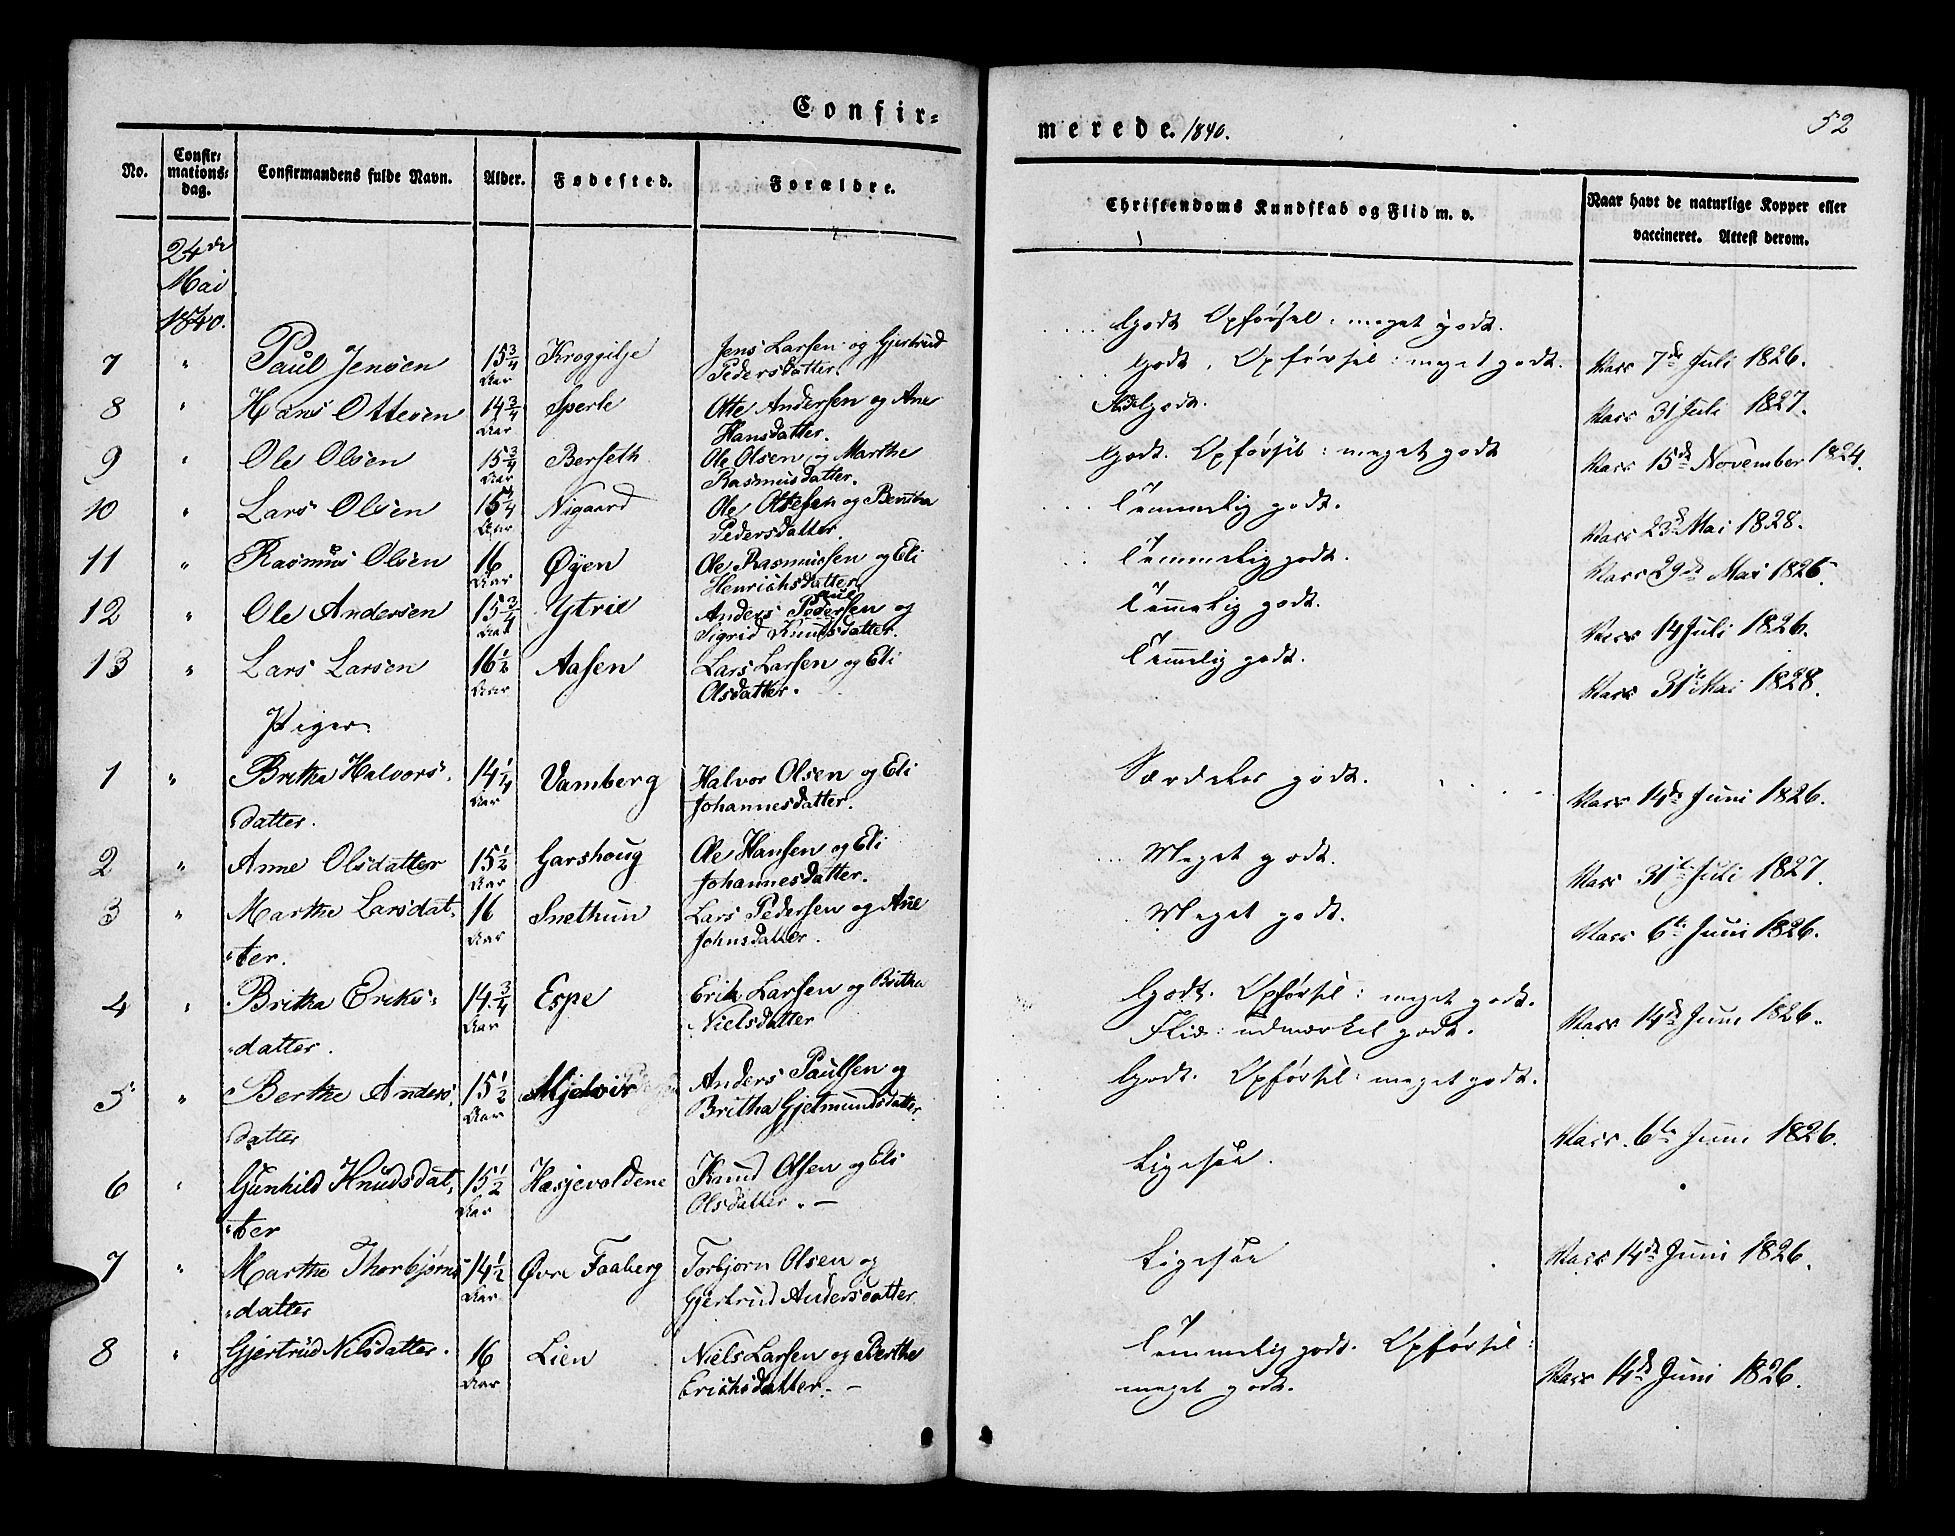 Confir-
merede. 1840.
52
No.
Confir-
mations-
dag.
Confirmandens fulde Navn.
Alder.
Fødested.
Forældre.
Christendoms Kundskab og Flid m. v.
Naar havt de naturlige Kopper eller
vaccineret. Attest derom.
24de
Mai
1840.
Godt Opførsel: meget godt.
7 " Paul Jensen 15 3/4 Aar Kroggilje Jens Larsen og Gjertrud
Pedersdatter.
Godt, Opførsel: meget godt. Vacc 7de Juli 1826.
8 " Hans Ottesen 14 3/4 Aar Sperle Otte Andersen og Ane
Hansdatter.
godt. Vacc 31 Juli 1827.
9 " Ole Olsen 15 3/4 Aar Berseth Ole Olsen og Marthe
Rasmusdatter.
Godt. Opførsel: meget godt Vacc 15de November 1824.
10 " Lars Olsen 15 1/4 Aar Nigaard Ole Ottesen og Bentha
Pedersdatter.
Temmelig godt. Vacc 23d Mai 1828.
11 " Rasmus Olsen 16 Aar Øyen Ole Rasmussen og Eli
Henrichsdatter
Temmelig godt. Vacc 29de Mai 1826.
12 " Ole Andersen 15 3/4 Aar Ytrie Anders Pedersen og
Sigrid Knudsdatter.
Temelig godt. Vacc 14 Juli 1826.
13 " Lars Larsen 16 1/2 Aar Aasen Lars Larsen og Eli
Olsdatter.
Temelig godt. Vacc 31te Mai 1828.
Piger.
1 " Britha Halvors-
datter. 14 1/4 Aar Vamberg Halvor Olsen og Eli
Johannesdatter.
Særdeles godt. Vacc 14de Juni 1826.
2 " Anne Olsdatter 15 1/2 Aar Garshoug Ole Hansen og Eli
Johannesdatter.
Meget godt. Vacc 31te Juli 1827.
3 " Marthe Larsdat-
ter. 16 Aar Snethun Lars Pedersen og Ane
Johnsdatter.
Meget godt. Vacc 6te Juni 1826.
4 " Britha Eriks-
datter. 14 3/4 Aar Espe Erik Larsen og Britha
Nielsdatter
Godt. Opførsel: meget godt.
Flid: udmærket godt. Vacc 14de Juni 1826.
5 " Berthe Anders-
datter 15 1/2 Aar Mjelvir Anders Paulsen og
Britha Gjelmundsdatter.
Godt. Opførsel: meget godt. Vacc. 6te Juni 1826.
6 " Gunhild Knudsdat-
ter 15 1/2 Aar Hasjevoldene Knud Olsen og Eli
Olsdatter. —
Ligesaa. Vacc 14de Juni 1826.
7 " Marthe Thorbjørns-
datter 14 1/2 Aar Øvre Faaberg Torbjorn Olsen og
Gjertrud Andersdatter
Ligesaa
8 " Gjertrud Nilsdatter. 16 Aar Lien Niels Larsen og Berthe
Erichsdatter. —
Temmelig godt. Opførsel:
meget godt. Vacc 14de Juni 1826.